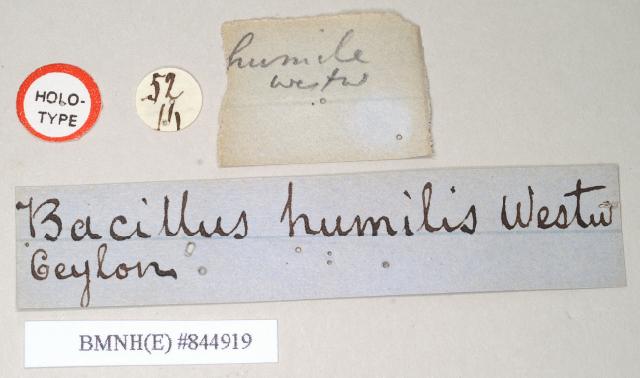 HOLO-
TYPE
52
11
humile
westw
Bacillus humilis Westw
Ceylon
BMNH(E) #844919